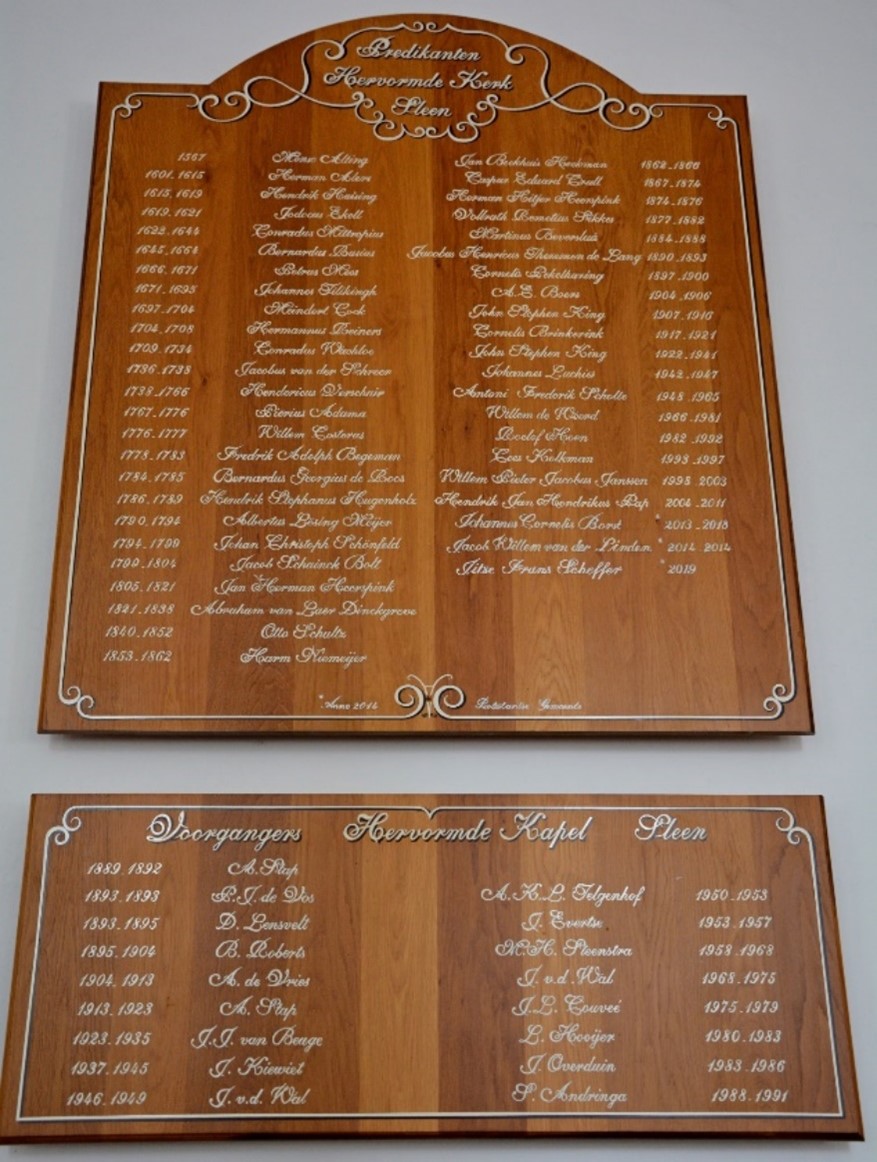 Predikanten
Hervormde Kerk
Sleen
1567 Menso Alting
1601.1615 Herman Alers
1615.1619 Hendrik Heising
1619.1621 Jodocus Ekell
1622.1644 Conradus Mittropius
1645.1664 Bernardus Busius
1666.1671 Petrus Mees
1671.1695 Johannes Tilikingh
1697.1704 Meindert Cock
1704.1708 Hermannus Reiners
1709.1734 Conradus Wachloe
1736.1738 Jacobus van der Schreer
1738.1766 Hendericus Verschuir
1767.1776 Pierius Adama
1776.1777 Willem Costerus
1778.1783 Fredrik Adolph Begeman
1784.1785 Bernardus Georgius de Bees
1786.1789 Hendrik Stephanus Hugenholz
1790.1794 Albertus Lesing Meijer
1794.1799 Johan Christoph Schönfeld
1799.1804 Jacob Schainck Bolt
1805.1821 Jan Herman Heerspink
1821.1838 Abraham van Laer Dinckgreve
1840.1852 Otto Schultz
1853.1862 Harm Niemeijer
Jan Beekhuis 1862.1866
Casper Eduard Trull 1867.1874
Herman Heijer Heerspink 1874.1876
Vollrath Remelius Sikkes 1877.1882
Martinus Beversluis 1884.1888
Jacobus Henricus Thesseman de Lang 1890.1893
Cornelis Pekelharing 1897.1900
A.E. Boers 1904.1906
John Stephen King 1907.1916
Cornelis Brinkerink 1917.1921
John Stephen King 1922.1941
Johannes Luchies 1942.1947
Antoni Frederik Schulte 1948.1965
Willem de Weerd 1966.1981
Roelof Hoen 1982.1992
Cees Kolkman 1993.1997
Willem Pieter Jacobus Janssen 1998 2003
Hendrik Jan Hendrikus Pap 2004.2011
Johannes Cornelis Borst * 2013.2018
Jacob Willem van der Linden * 2014 2014
Jitse Frans Scheffer * 2019
* Anno 2014 Protestantse Gemeente
Voorgangers Hervormde Kapel Sleen
1889.1892 A. Stap
1893.1893 P.J. de Vos
1893.1895 D. Lensvelt
1895.1904 B. Roberts
1904.1913 A. de Vries
1913.1923 A. Stap
1923.1935 J.J. van Beuge
1937.1945 J. Kiewiet
1946.1949 J. v.d. Wal
A.K.L. Telgenhof 1950.1953
J. Evertse 1953.1957
M.H. Steenstra 1958.1968
J. v.d. Wal 1968.1975
J.L. Couveé 1975.1979
L. Hooijer 1980.1983
J. Overduin 1983.1986
S. Andringa 1988.1991